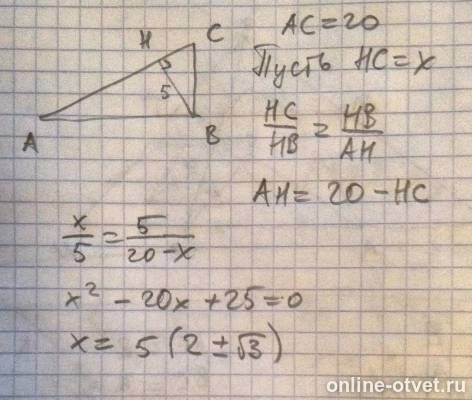 AC = 20
Пусть HC = x
HC/HB = HB/AH
AH = 20 - HC
x/5 = 5/(20 - x)
x² - 20x + 25 = 0
x = 5(2 ± √3)
H
C
5
A
B
online-otvet.ru